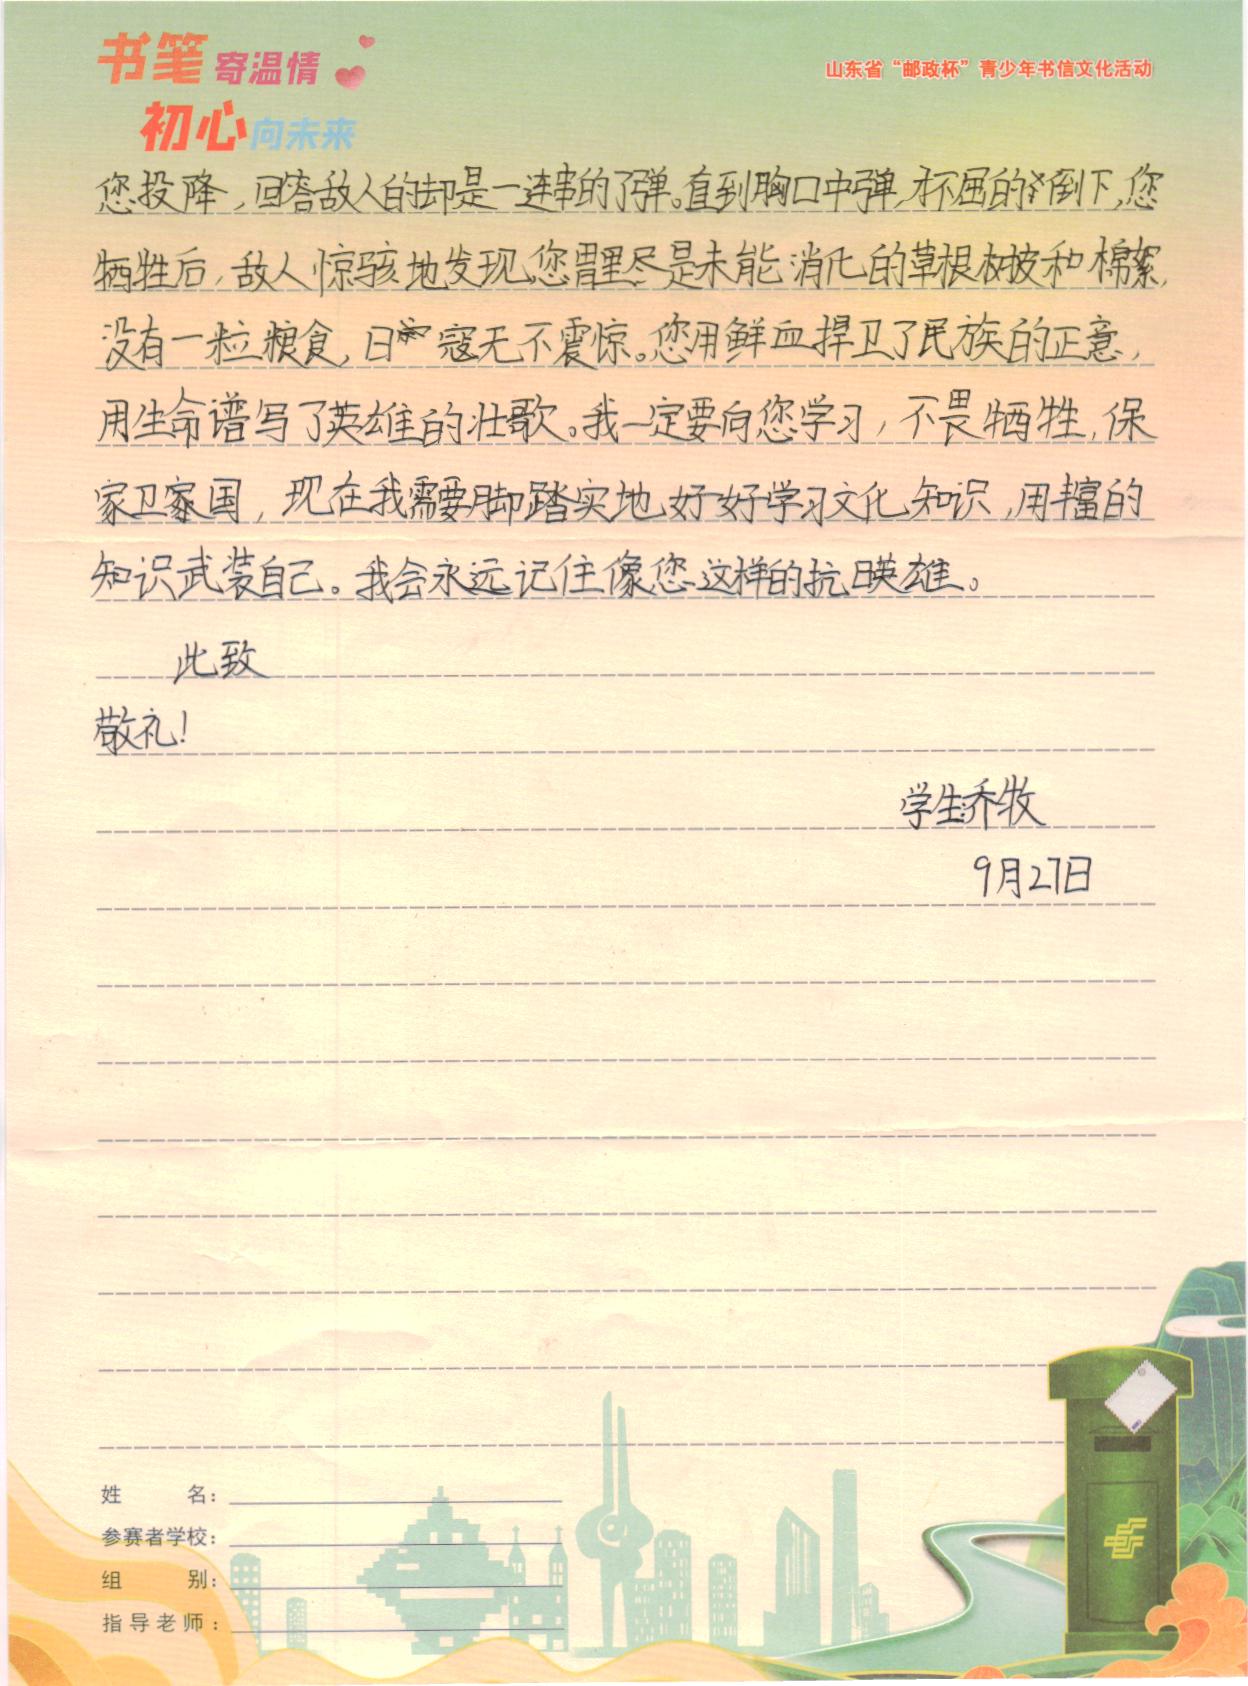 书笔寄温情
初心向未来
山东省“邮政杯”青少年书信文化活动
您投降，回答敌人的却是一连串的了弹。直到胸口中弹，才不屈的倒下，您
牺牲后，敌人惊骇地发现，您胃里尽是未能消化的草根树皮和棉絮，
没有一粒粮食，日寇无不震惊。您用鲜血捍卫了民族的正意，
用生命谱写了英雄的壮歌。我一定要向您学习，不畏牺牲，保
家卫家国，现在我需要脚踏实地，好好学习文化知识，用丰富的
知识武装自己。我会永远记住像您这样的抗日英雄。
此致
敬礼！
学生：乔牧
9月27日
姓名：
参赛者学校：
组别：
指导老师：